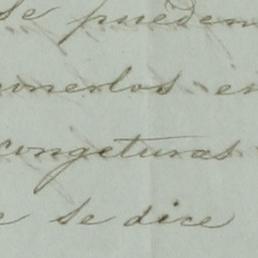 se pueden
ponerlos en
congeturas
e se dice